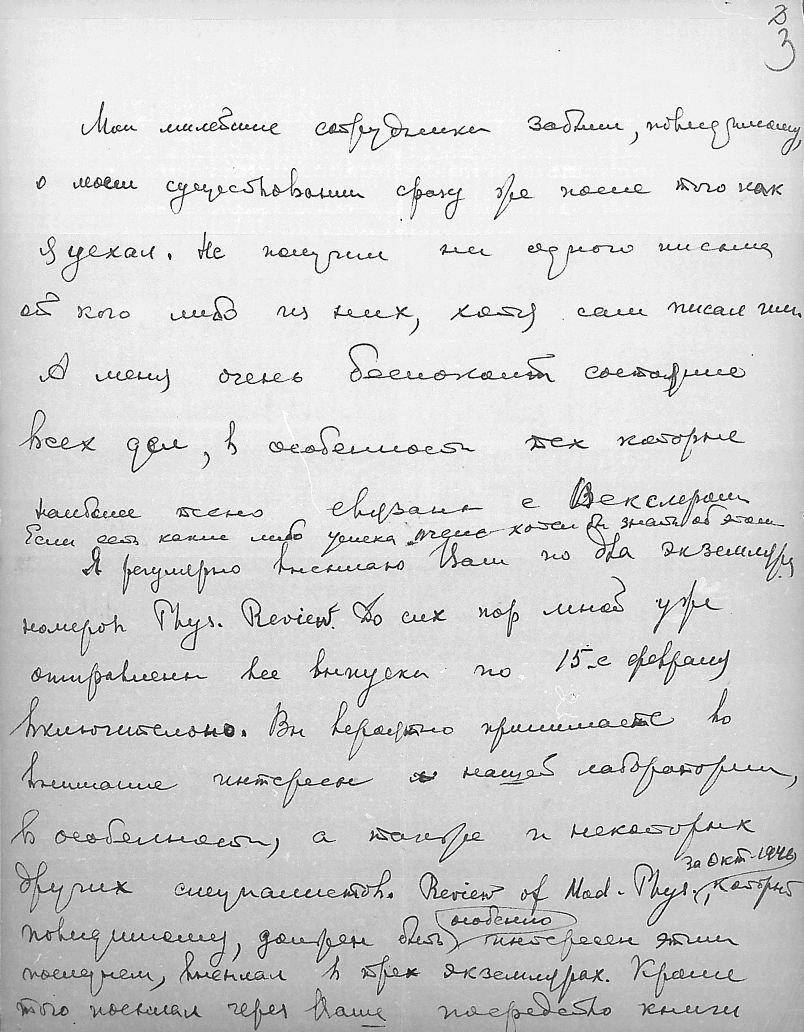 3
Мои милейшие сотрудники забыли, повидимому,
о моем существовании сразу же после того как
я уехал. Не получил ни одного письма
от кого либо из них, хотя сам писал им.
А меня очень беспокоит состояние
всех дел, в особенности тех которые
наиболее тесно связаны с Векслером
Если есть какие либо успехи очень хотел бы знать об этом
Я регулярно высылаю Вам по два экземпляра
номеров Phys. Review. До сих пор мной уже
отправлены все выпуски по 15-е февраля
включительно. Вы вероятно принимаете во
внимание интересы нашей лаборатории,
в особенности, а также и некоторых
за Окт. 1946
других специалистов. Review of Mod. Phys., который
особенно
повидимому, должен быть интересен этим
последнем, выслал в трех экземплярах. Кроме
того послал через Ваше посредство книги